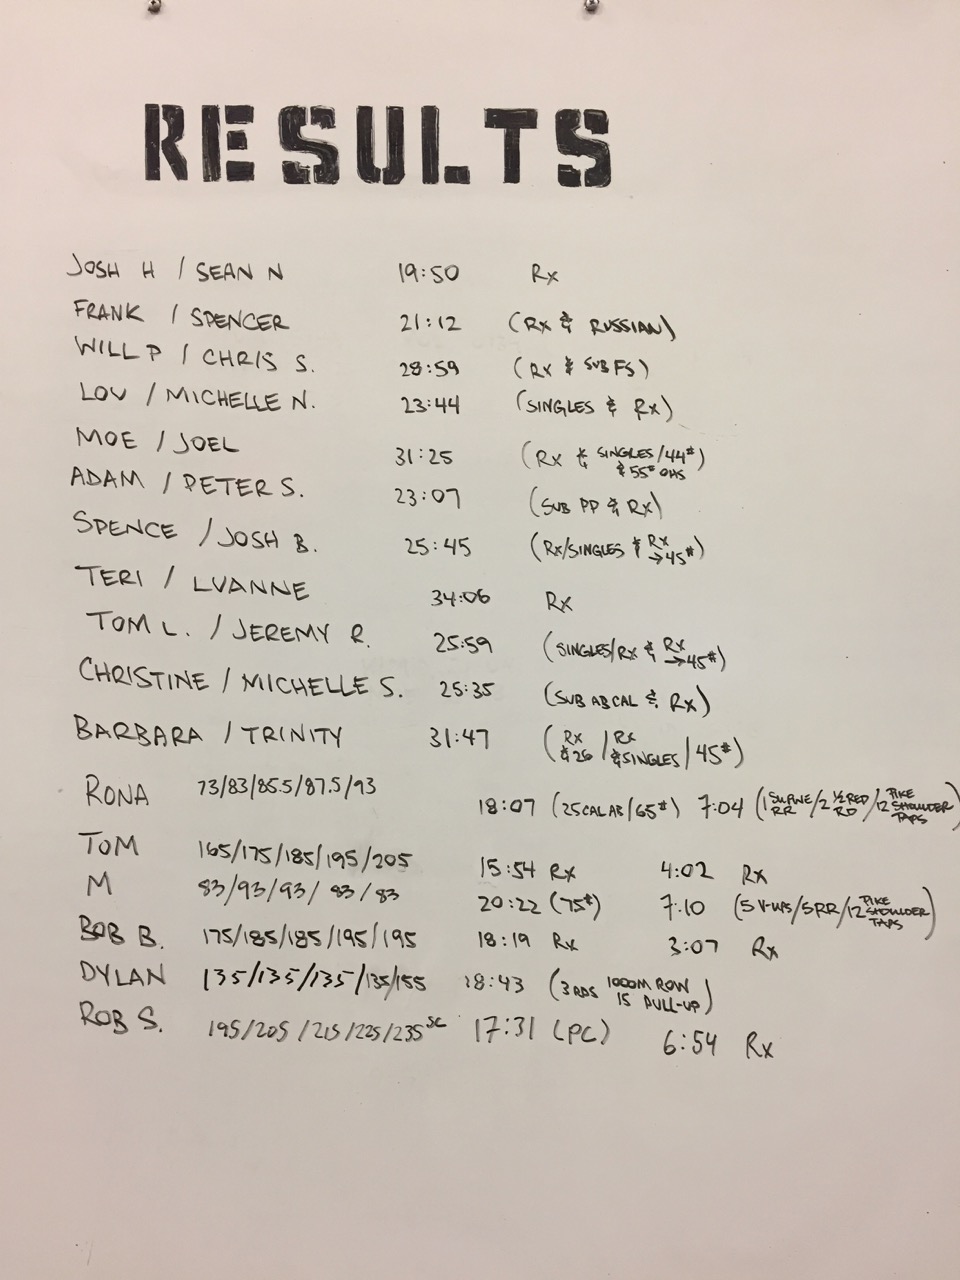 RESULTS
JOSH H / SEAN N 19:50 Rx
FRANK / SPENCER 21:12 (Rx & RUSSIAN)
WILL P / CHRIS S. 28:59 (Rx & SUB FS)
LOU / MICHELLE N. 23:44 (SINGLES & Rx)
MOE / JOEL 31:25 (Rx & SINGLES/44# & 55# OHS)
ADAM / PETER S. 23:07 (SUB PP & Rx)
SPENCE / JOSH B. 25:45 (Rx/SINGLES & Rx →45#)
TERI / LUANNE 34:06 Rx
TOM L. / JEREMY R. 25:59 (SINGLES/Rx & Rx →45#)
CHRISTINE / MICHELLE S. 25:35 (SUB AB CAL & Rx)
BARBARA / TRINITY 31:47 (Rx & 26 / Rx & SINGLES / 45#)
RONA 73/83/85.5/87.5/93 18:07 (25 CAL AB/65#) 7:04 (1 SUPINE RR/2 1/2 RED RD/12 PIKE SHOULDER TAPS)
TOM 165/175/185/195/205 15:54 Rx 4:02 Rx
M 83/93/93/83/83 20:22 (75#) 7:10 (5 V-UPS/5RR/12 PIKE SHOULDER TAPS)
BOB B. 175/185/185/195/195 18:19 Rx 3:07 Rx
DYLAN 135/135/135/135/155 18:43 (3 RDS 1000M ROW 15 PULL-UP)
ROB S. 195/205/215/225/235 SC 17:31 (PC) 6:54 Rx